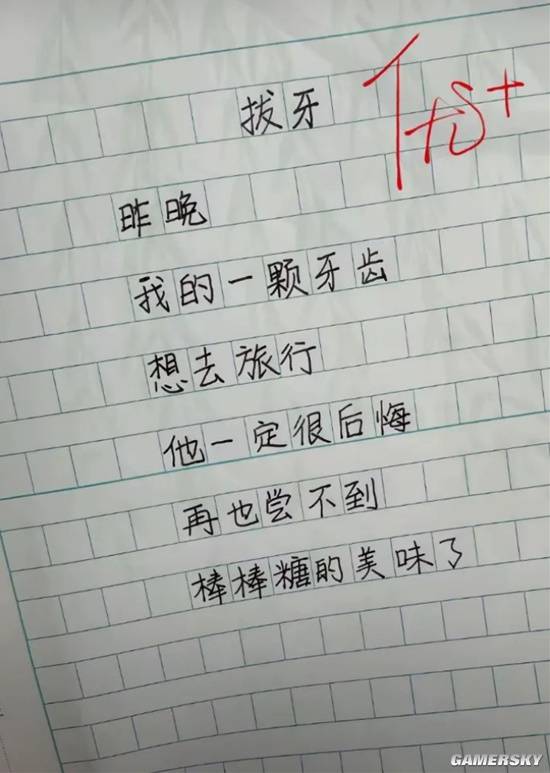 拔牙
优+
昨晚
我的一颗牙齿
想去旅行
他一定很后悔
再也尝不到
棒棒糖的美味了
GAMERSKY